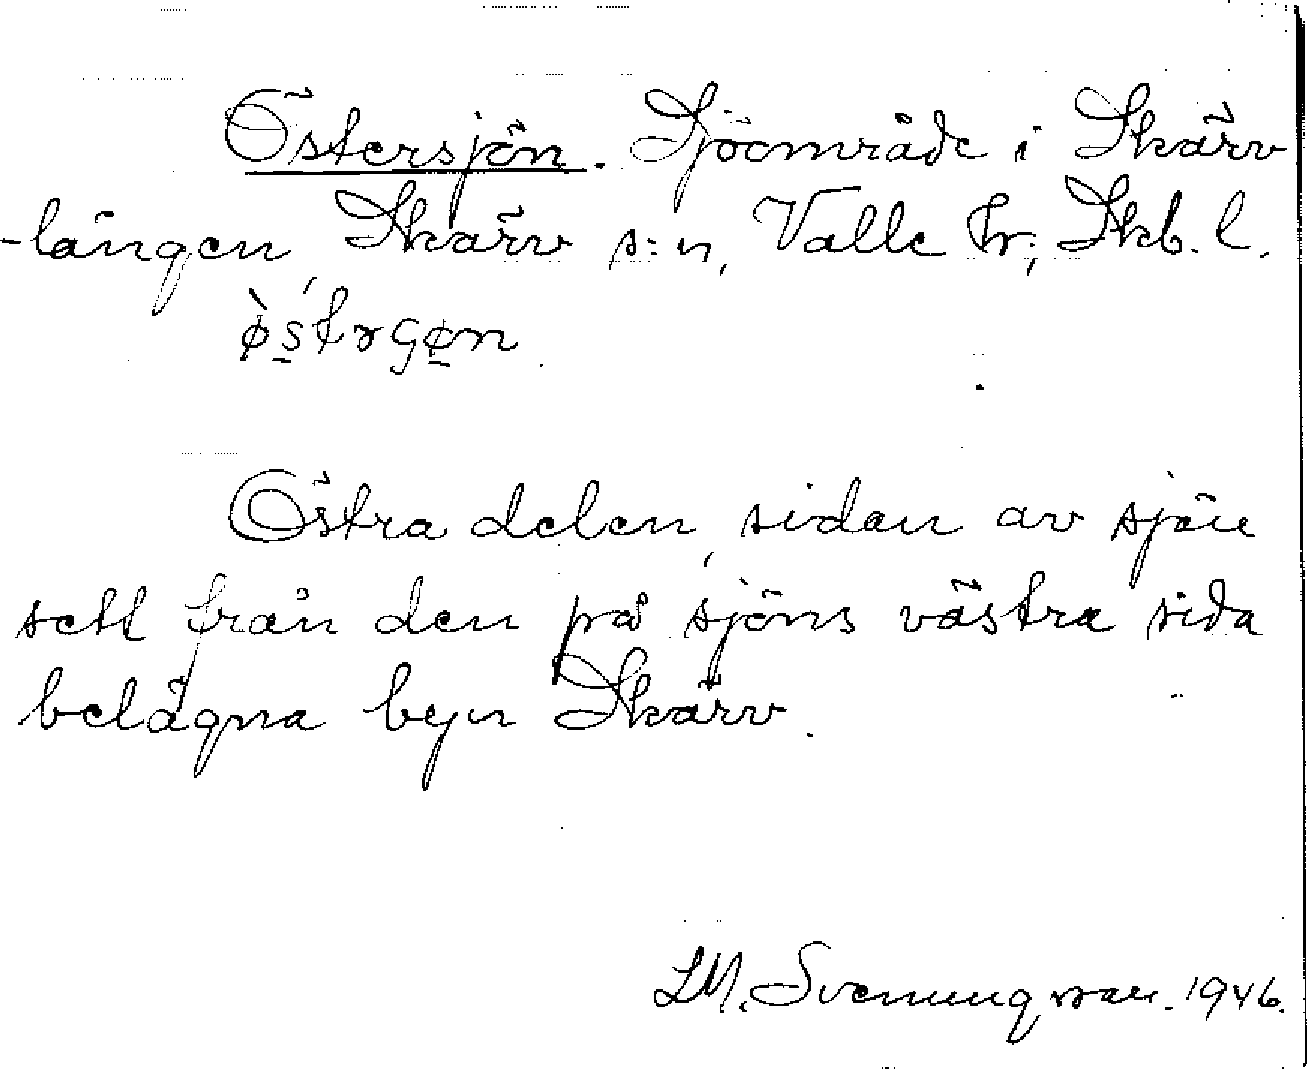 Östersjön. Sjöområde i Skärv
-lången, Skärv s:n, Valle hr; Skb. l.
Östra delen, sidan av sjön
sett från den på sjöns västra sida
belägna byn Skärv.
LM. Svenungsson. 1946.